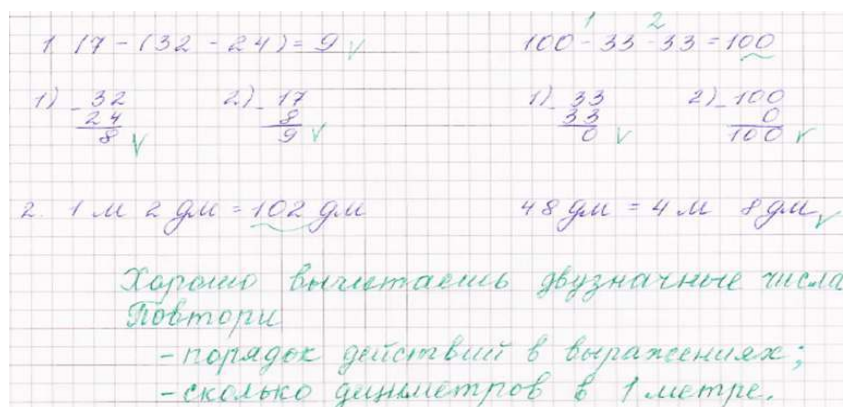 1 17 - (32 - 24) = 9 ∨ 100 - 33 - 33 = 100
1 2
1) - 32 2) - 17 1) - 33 2) - 100
24 8 33 0
8 ∨ 9 ∨ 0 ∨ 100 ∨
2. 1 м 2 дм = 102 дм 48 дм = 4 м 8 дм ∨
Хорошо вычитаешь двузначные числа
Повтори
- порядок действий в выражениях;
- сколько дециметров в 1 метре.